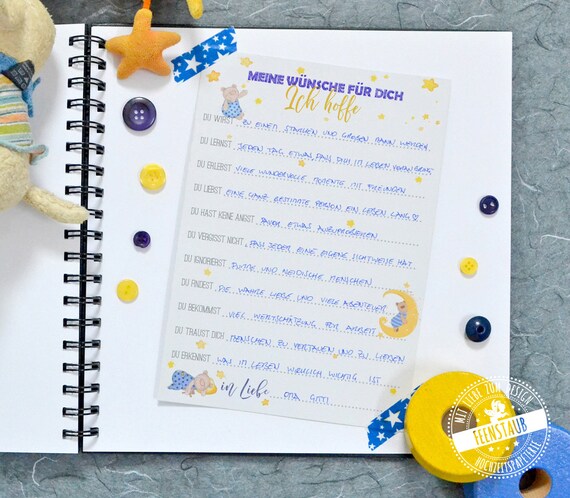 MEINE WÜNSCHE FÜR DICH
Ich hoffe
DU WIRST ZU EINEM STARKEN UND GROẞEN MANN WERDEN
DU LERNST JEDEN TAG ETWAS, DAS DICH IM LEBEN VORAN BRINGT
DU ERLEBST VIELE WUNDERVOLLE MOMENTE MIT
DU LIEBST EINE GANZ BESTIMMTE PERSON EIN LEBEN LANG
DU HAST KEINE ANGST DAVOR ETWAS AUSZUPROBIEREN
DU VERGISST NICHT, DAS JEDER EINE EIGENE SICHTWEISE HAT
DU IGNORIERST BLÖDE UND NEIDISCHE MENSCHEN
DU FINDEST DIE WAHRE LIEBE UND VIELE ABENTEUER
DU BEKOMMST VIEL WERTSCHÄTZUNG BEI ARBEIT
DU TRAUST DICH MENSCHEN ZU VERTRAUEN UND ZU LIEBEN
DU ERKENNST WAS IM LEBEN WIRKLICH WICHTIG IST
in Liebe OMA GITTI
MIT LIEBE ZUM DETAIL
FEENSTAUB
HOCHZEITSPAPETERIE